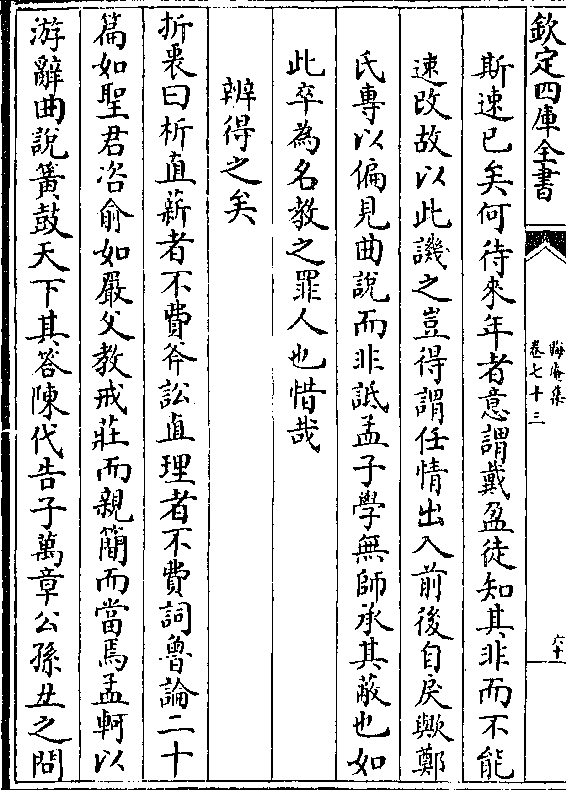 欽定四庫全書
晦庵集
卷七十三
六十
斯速已矣何待來年者意謂戴盈徒知其非而不能
速改故以此譏之豈得謂任情出入前後自戾歟鄭
氏專以偏見曲說而非詆孟子學無師承其蔽也如
此卒為名教之罪人也惜哉
辨得之矣
折衷曰析直薪者不費斧訟直理者不費詞魯論二十
篇如聖君咨俞如嚴父教戒莊而親簡而當焉孟軻以
游辭曲說簧鼓天下其答陳代告子萬章公孫丑之問